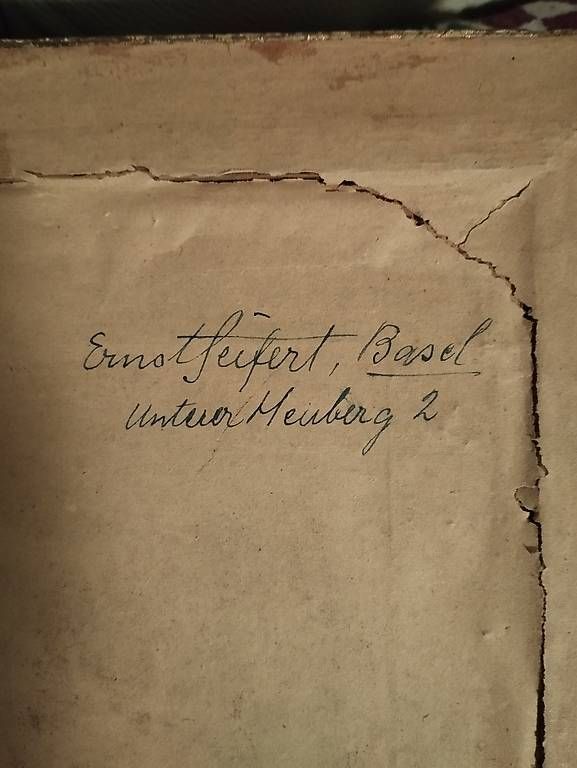 Ernst Seifert, Basel
Unterer Heuberg 2